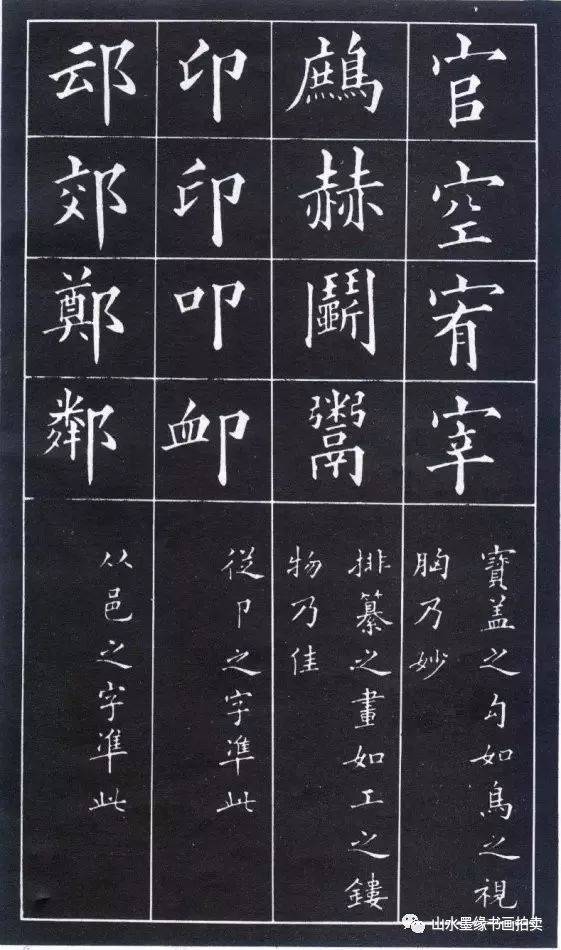 官
空
宥
宰
寶盖之勾如鳥之視
胸乃妙
鷓
赫
鬭
鬻
排纂之畫如工之鏤
物乃佳
印
印
叩
卹
従卩之字準此
䢵
郊
鄭
鄰
从邑之字準此
山水墨缘书画拍卖